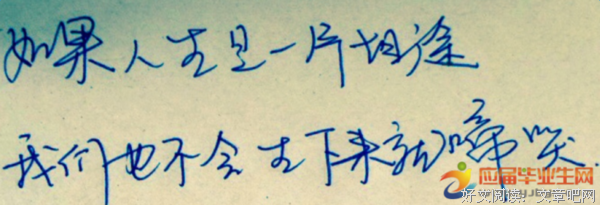 如果人生是一片坦途
我们也不会生下来就啼哭.
应届毕业生网
好文阅读：文章吧网